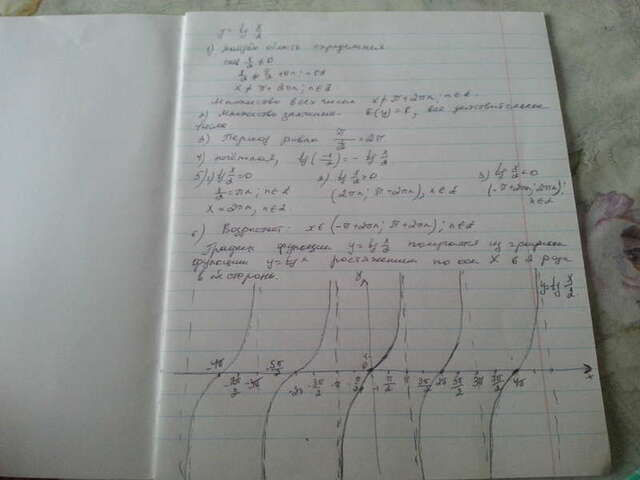 y = tg x/2
1) найдём область определения
cos x/2 ≠ 0
x/2 ≠ π/2 + πn; n∈Z
x ≠ π + 2πn; n∈Z
Множество всех чисел x ≠ π + 2πn; n∈Z.
2) Множество значений E(y) = R, все действительные
числа
3) Период равен π/(1/2) = 2π
4) нечётная, tg(-x/2) = - tg x/2
5) 1) tg x/2 = 0 2) tg x/2 > 0 3) tg x/2 < 0
x/2 = πn; n∈Z (2πn; π + 2πn), n∈Z (-π + 2πn; 2πn);
x = 2πn, n∈Z. n∈Z
6) Возрастает. x∈(-π + 2πn; π + 2πn); n∈Z
График функции y = tg x/2 получается из графика
функции y = tg x растяжением по оси X в 2 раза
в обе стороны.
y y = tg x/2
-2π -3π/2 -π 0 π/2 π 3π/2 2π 3π 4π x